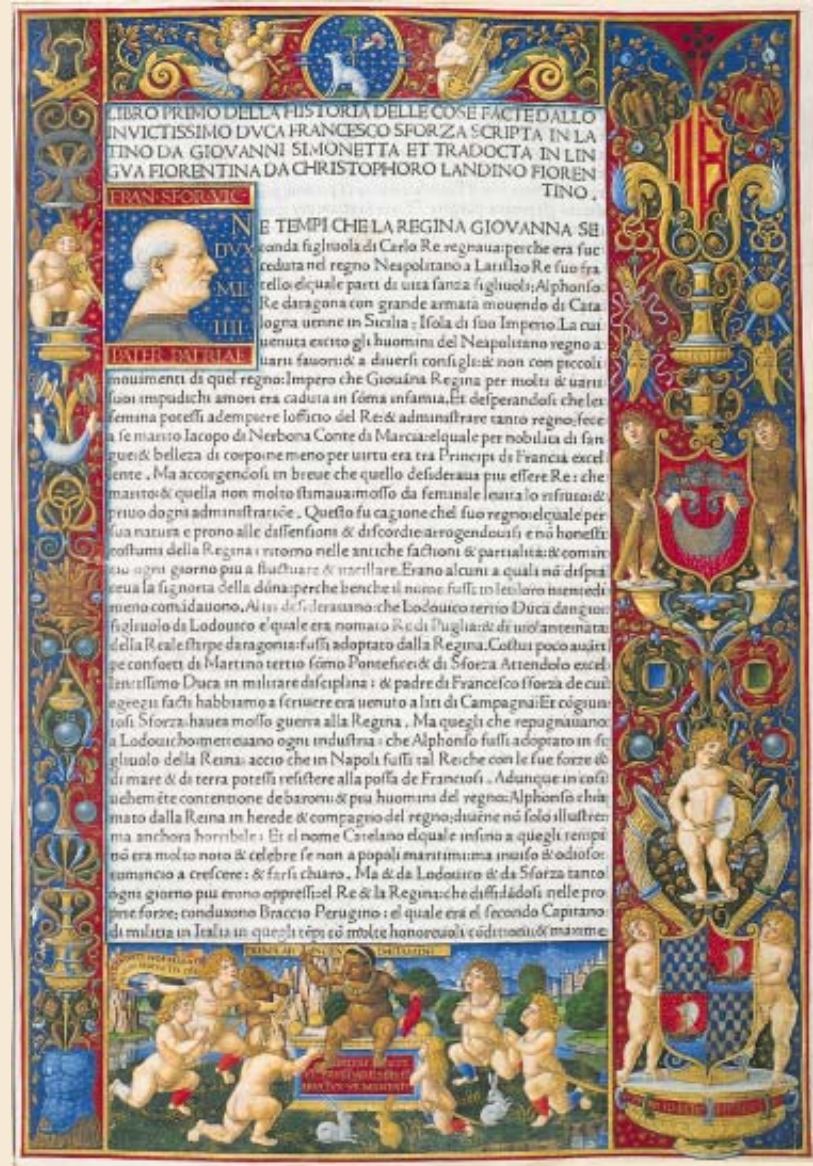 LIBRO PRIMO DELLA HISTORIA DELLE COSE FACTE DALLO
INVICTISSIMO DVCA FRANCESCO SFORZA SCRIPTA IN LA
TINO DA GIOVANNI SIMONETTA ET TRADOCTA IN LIN
GVA FIORENTINA DA CHRISTOPHORO LANDINO FIOREN
TINO.
FRAN SFOR VIC
DVX
MLI
IIII
PATER PATRIAE
NE TEMPI CHE LA REGINA GIOVANNA SE
conda figliuola di Carlo Re regnaua: perche era suc
ceduta nel regno Neapolitano a Latislao Re suo fra
tello: elquale parti di uita sanza figliuoli: Alphonso
Re daragona con grande armata mouendo di Cata
logna uenne in Sicilia: Isola di suo Imperio. La cui
uenuta excito gli huomini del Neapolitano regno a
uarii fauori: & a diuersi consigli: & non con piccoli
mouimenti di quel regno: Impero che Giouāna Regina per molti & uarii
suoi impudichi amori era caduta in sōma infamia. Et desperandosi che lei
femina potessi adempiere lofficio del Re: & administrare tanto regno: fece
a se marito Iacopo di Nerbona Conte di Marcia: elquale per nobilita di san
gue: & belleza di corpo: ne meno per uirtu era tra Principi di Francia excel
lente. Ma accorgendosi in breue che quello desideraua piu essere Re: che
marito: & quella non molto stimaua: mosso da feminile leuita lo rifiuto: &
priuo dogni administratiōe. Questo fu cagione chel suo regno: elquale per
sua natura e prono alle dissensioni & discordie: arrogendouisi e nō honesti
costumi della Regina: ritorno nelle antiche factioni & partialita: & comin
cio ogni giorno piu a fluctuare & uacillare. Erano alcuni a quali nō dispia
ceua la signoria della dōna: perche benche il nome fussi in lei: loro nientedi
meno comādauono. Altri desiderauano: che Lodouico tertio Duca dangio:
figliuolo da Lodouico elquale era nomato Re di Puglia: & di
della Reale stirpe daragonia: fussi adoptato dalla Regina. Costui poco auāti
pe conforti di Martino tertio sōmo Pontefice: & di Sforza Attendolo excel
lentissimo Duca in militare disciplina: & padre di Francesco sforza de cui
egregii facti habbiamo a scriuere era uenuto a liti di Campagna: Et cōgiun
tosi Sforza: haueа mosso guerra alla Regina. Ma quegli che repugnauano
a Lodouicho: metteuano ogni industria: che Alphonso fussi adoptato in fi
gliuolo della Reina: accio che in Napoli fussi tal Re: che con le sue forze &
di mare & di terra potessi resistere alla possa de Franciosi. Adunque in cosi
uehemēte contentione de baroni: & piu huomini del regno: Alphonso chia
mato dalla Reina in herede & compagno del regno: diuēne nō solo illustre:
ma anchora horribile: Et el nome Catelano elquale insino a quegli tempi
nō era molto noto & celebre se non a popoli maritimi: ma inuiso & odioso:
comincio a crescere: & farsi chiaro. Ma & da Lodouico & da Sforza tanto
ogni giorno piu erono oppressi: el Re & la Regina: che diffidādosi nelle pro
prie forze: conduxono Braccio Perugino: el quale era el secondo Capitano
di militia in Italia in quegli tēpi cō molte honoreuoli cōditioni: & maxime